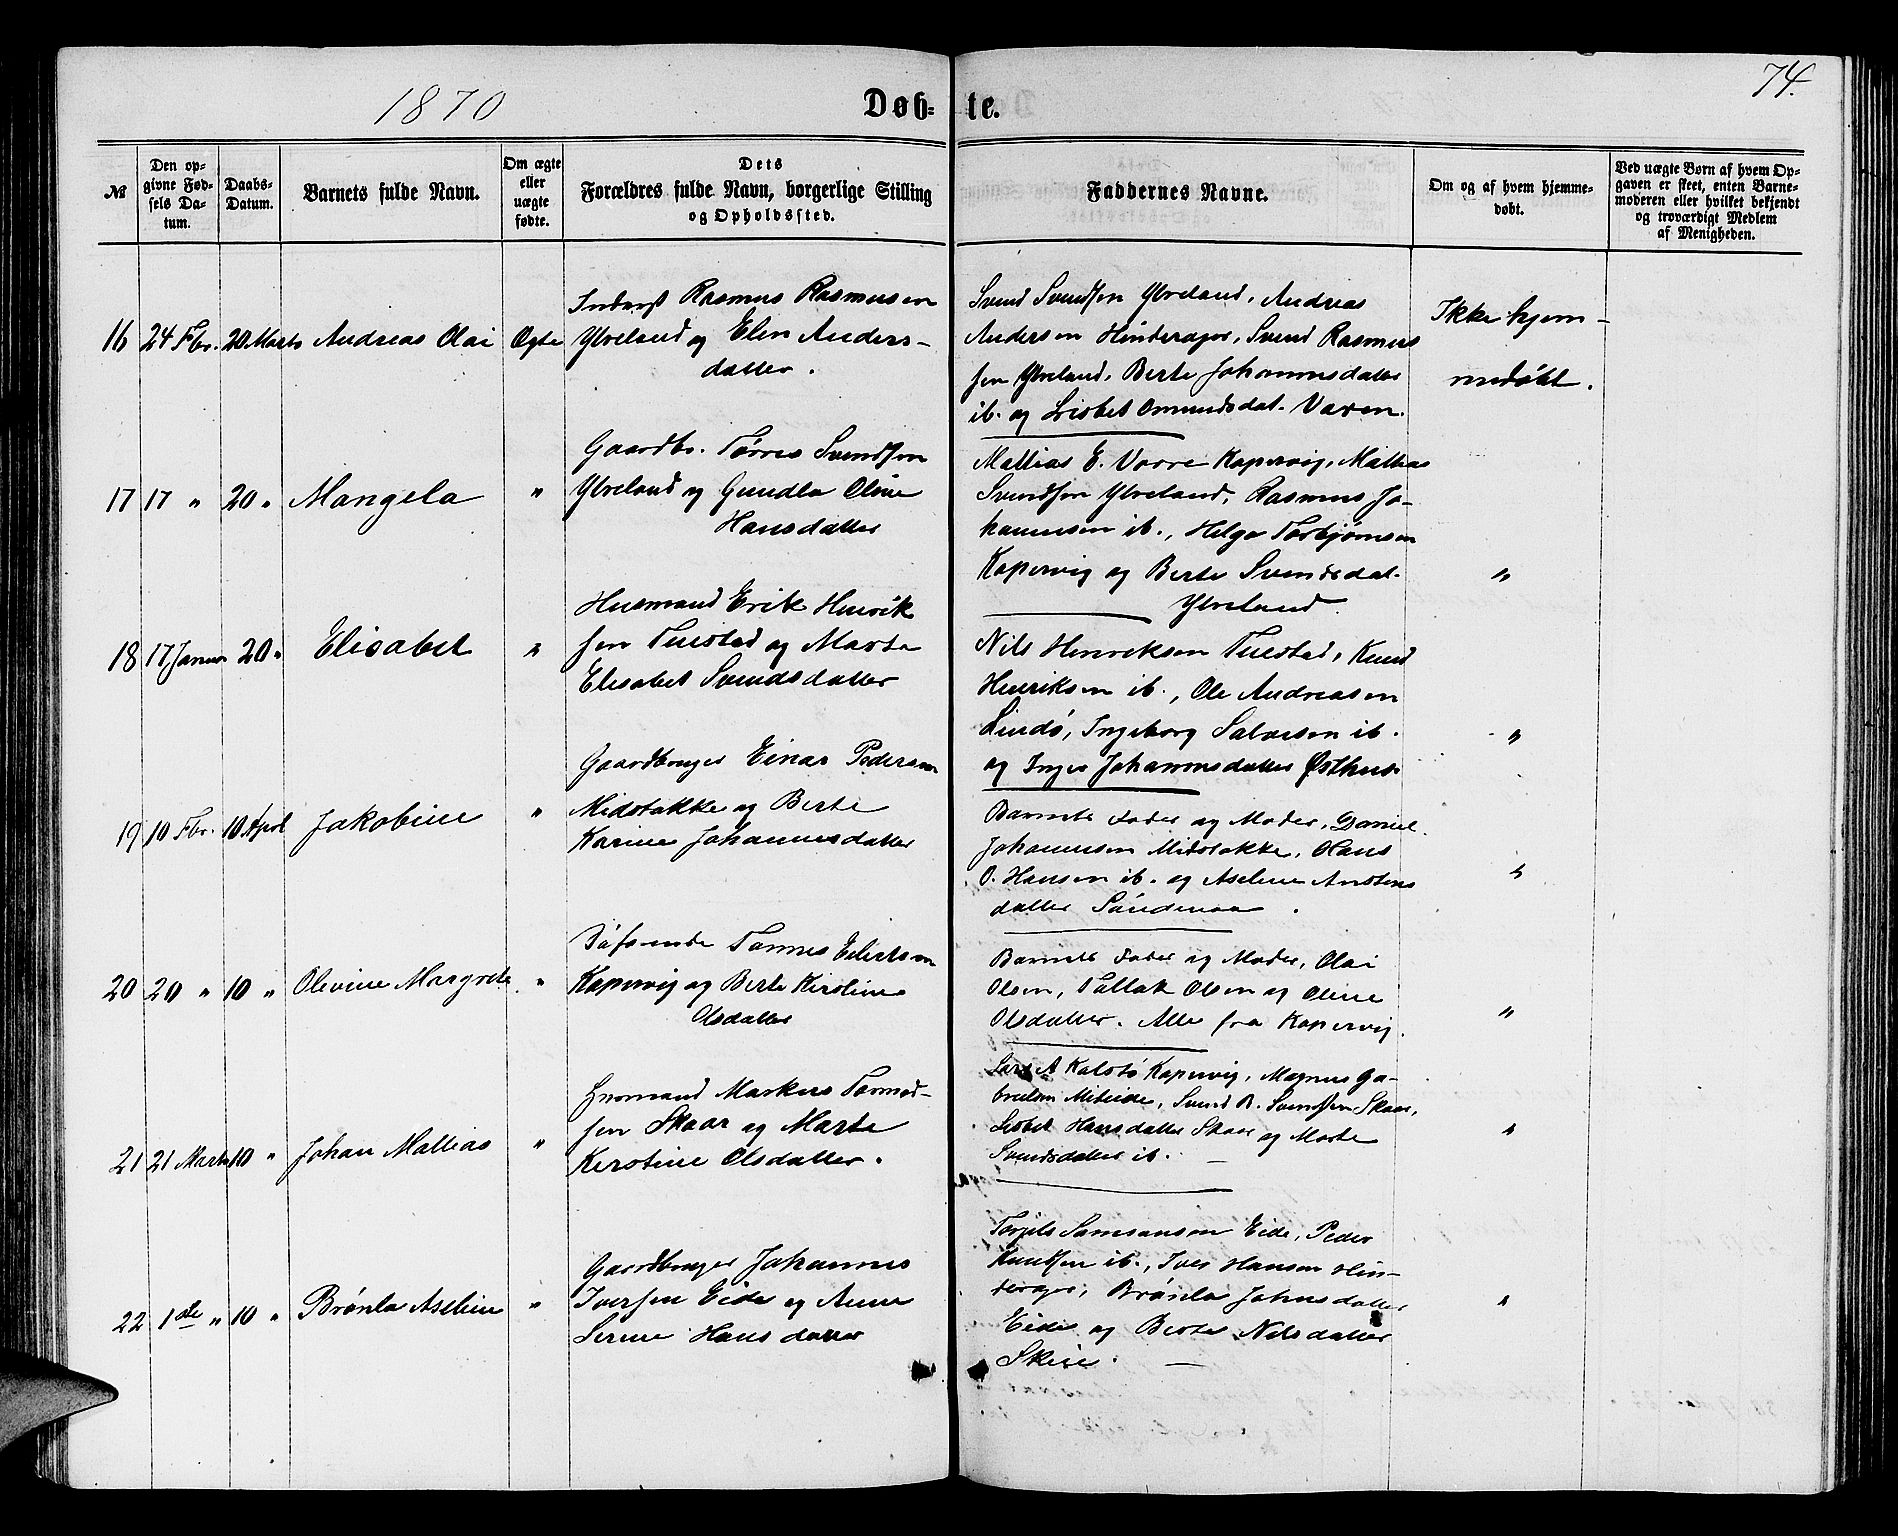 1870
Døb-te.
74.
№
Den opgivne Fødsels Datum.
Daabs-Datum.
Barnets fulde Navn.
Om ægte eller uægte fødte.
Dets Forældres fulde Navn, borgerlige Stilling og Opholdssted.
Faddernes Navne.
Om og af hvem hjemmedøbt.
Ved uægte Børn af hvem Opgaven er skeet, enten Barnemoderen eller hvilket bekjendt og troværdigt Medlem af Menigheden.
16 24 Fbr. 20 Marts Andreas Olai Ægte
Inderst Rasmus Rasmusen
Ytreland og Elen Anders-
datter.
Svend Svendsen Ytreland, Andreas
Andersen Hinderager, Svend Rasmus
sen Ytreland, Berte Johannesdatter
ib. og Lisbet Omundsdat. Varen.
Ikke hjem-
medøbt.
17 17 " 20 " Mangela "
Gaardbr. Tørres Svendsen
Ytreland og Gundla Oline
Hansdatter
Mathias E. Vorre Kopervig, Mathias
Svendsen Ytreland, Rasmus Jo-
hannesen ib., Helge Torbjørnsen
Kopervig og Berte Svendsdat.
Ytreland.
"
18 17 Januar 20 " Elisabet "
Husmand Erik Henrik
sen Tuestad og Marta
Elisabet Svendsdatter
Nils Henriksen Tuestad, Knud
Henriksen ib., Ole Andreasen
Lindø, Ingeborg Salvesen ib.
og Inger Johannesdatter Østhus
"
19 10 Fbr. 10 April Jakobine "
Gaardbruger Einar Pedersen
Midstokke og Berte
Karine Johannesdatter
Barnets Fader og Moder, Daniel
Johannesen Midstokke, Olaus
O. Hansen ib. og Aseline Anstens
datter Søndenaa.
"
20 20 " 10 " Olevine Margrete "
Løfsmde Tønnes Eilertsen
Kopervig og Berte Kirstine
Olsdatter
Barnets Fader og Moder, Olai
Olsen, Tallak Olsen og Oline
Olsdatter. Alle fra Kopervig.
"
21 21 Marts 10 " Johan Mathias "
Husmand Markus Tormod-
sen Skaar og Marte
Kirstine Olsdatter.
Lars A Kalstø Kopervig, Magnus Ga-
brielsen Miteide, Svend B. Svendsen Skaar,
Lisbet Hansdatter Skaar og Marte
Svendsdatter ib.
"
22 1de " 10 " Brønla Aseline "
Gaardbruger Johannes
Iversen Eide og Anne
Serine Hansdatter
Torjels Samsonsen Eide, Peder
Knudsen ib., Iver Hansen Hin-
derager, Brønla Johnsdatter
Eide og Berte Nilsdatter
Skeie.
"